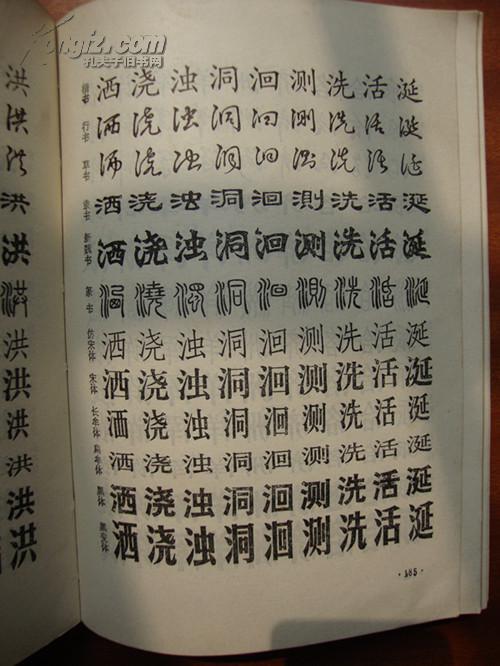 Kongfz.com
孔夫子旧书网
楷书 洒 浇 浊 洞 洄 测 洗 活 涎
行书 洒 浇 浊 洞 洄 测 洗 活 涎
草书 洒 浇 浊 洞 洄 测 洗 活 涎
隶书 洒 浇 浊 洞 洄 測 洗 活 涎
新魏书 洒 浇 浊 洞 洄 测 洗 活 涎
篆书 洒 澆 濁 洞 洄 測 洗 活 涎
仿宋体 洒 浇 浊 洞 洄 测 洗 活 涎
宋体 洒 浇 浊 洞 洄 测 洗 活 涎
长牟体 洒 浇 浊 洞 洄 测 洗 活 涎
扁牟体 洒 浇 浊 洞 洄 测 洗 活 涎
黑体 洒 浇 浊 洞 洄 测 洗 活 涎
洒 浇 浊 洞 洄 测 洗 活 涎
·185·
洪
洪
洪
洪
洪
洪
洪
洪
洪
洪
洪
洪